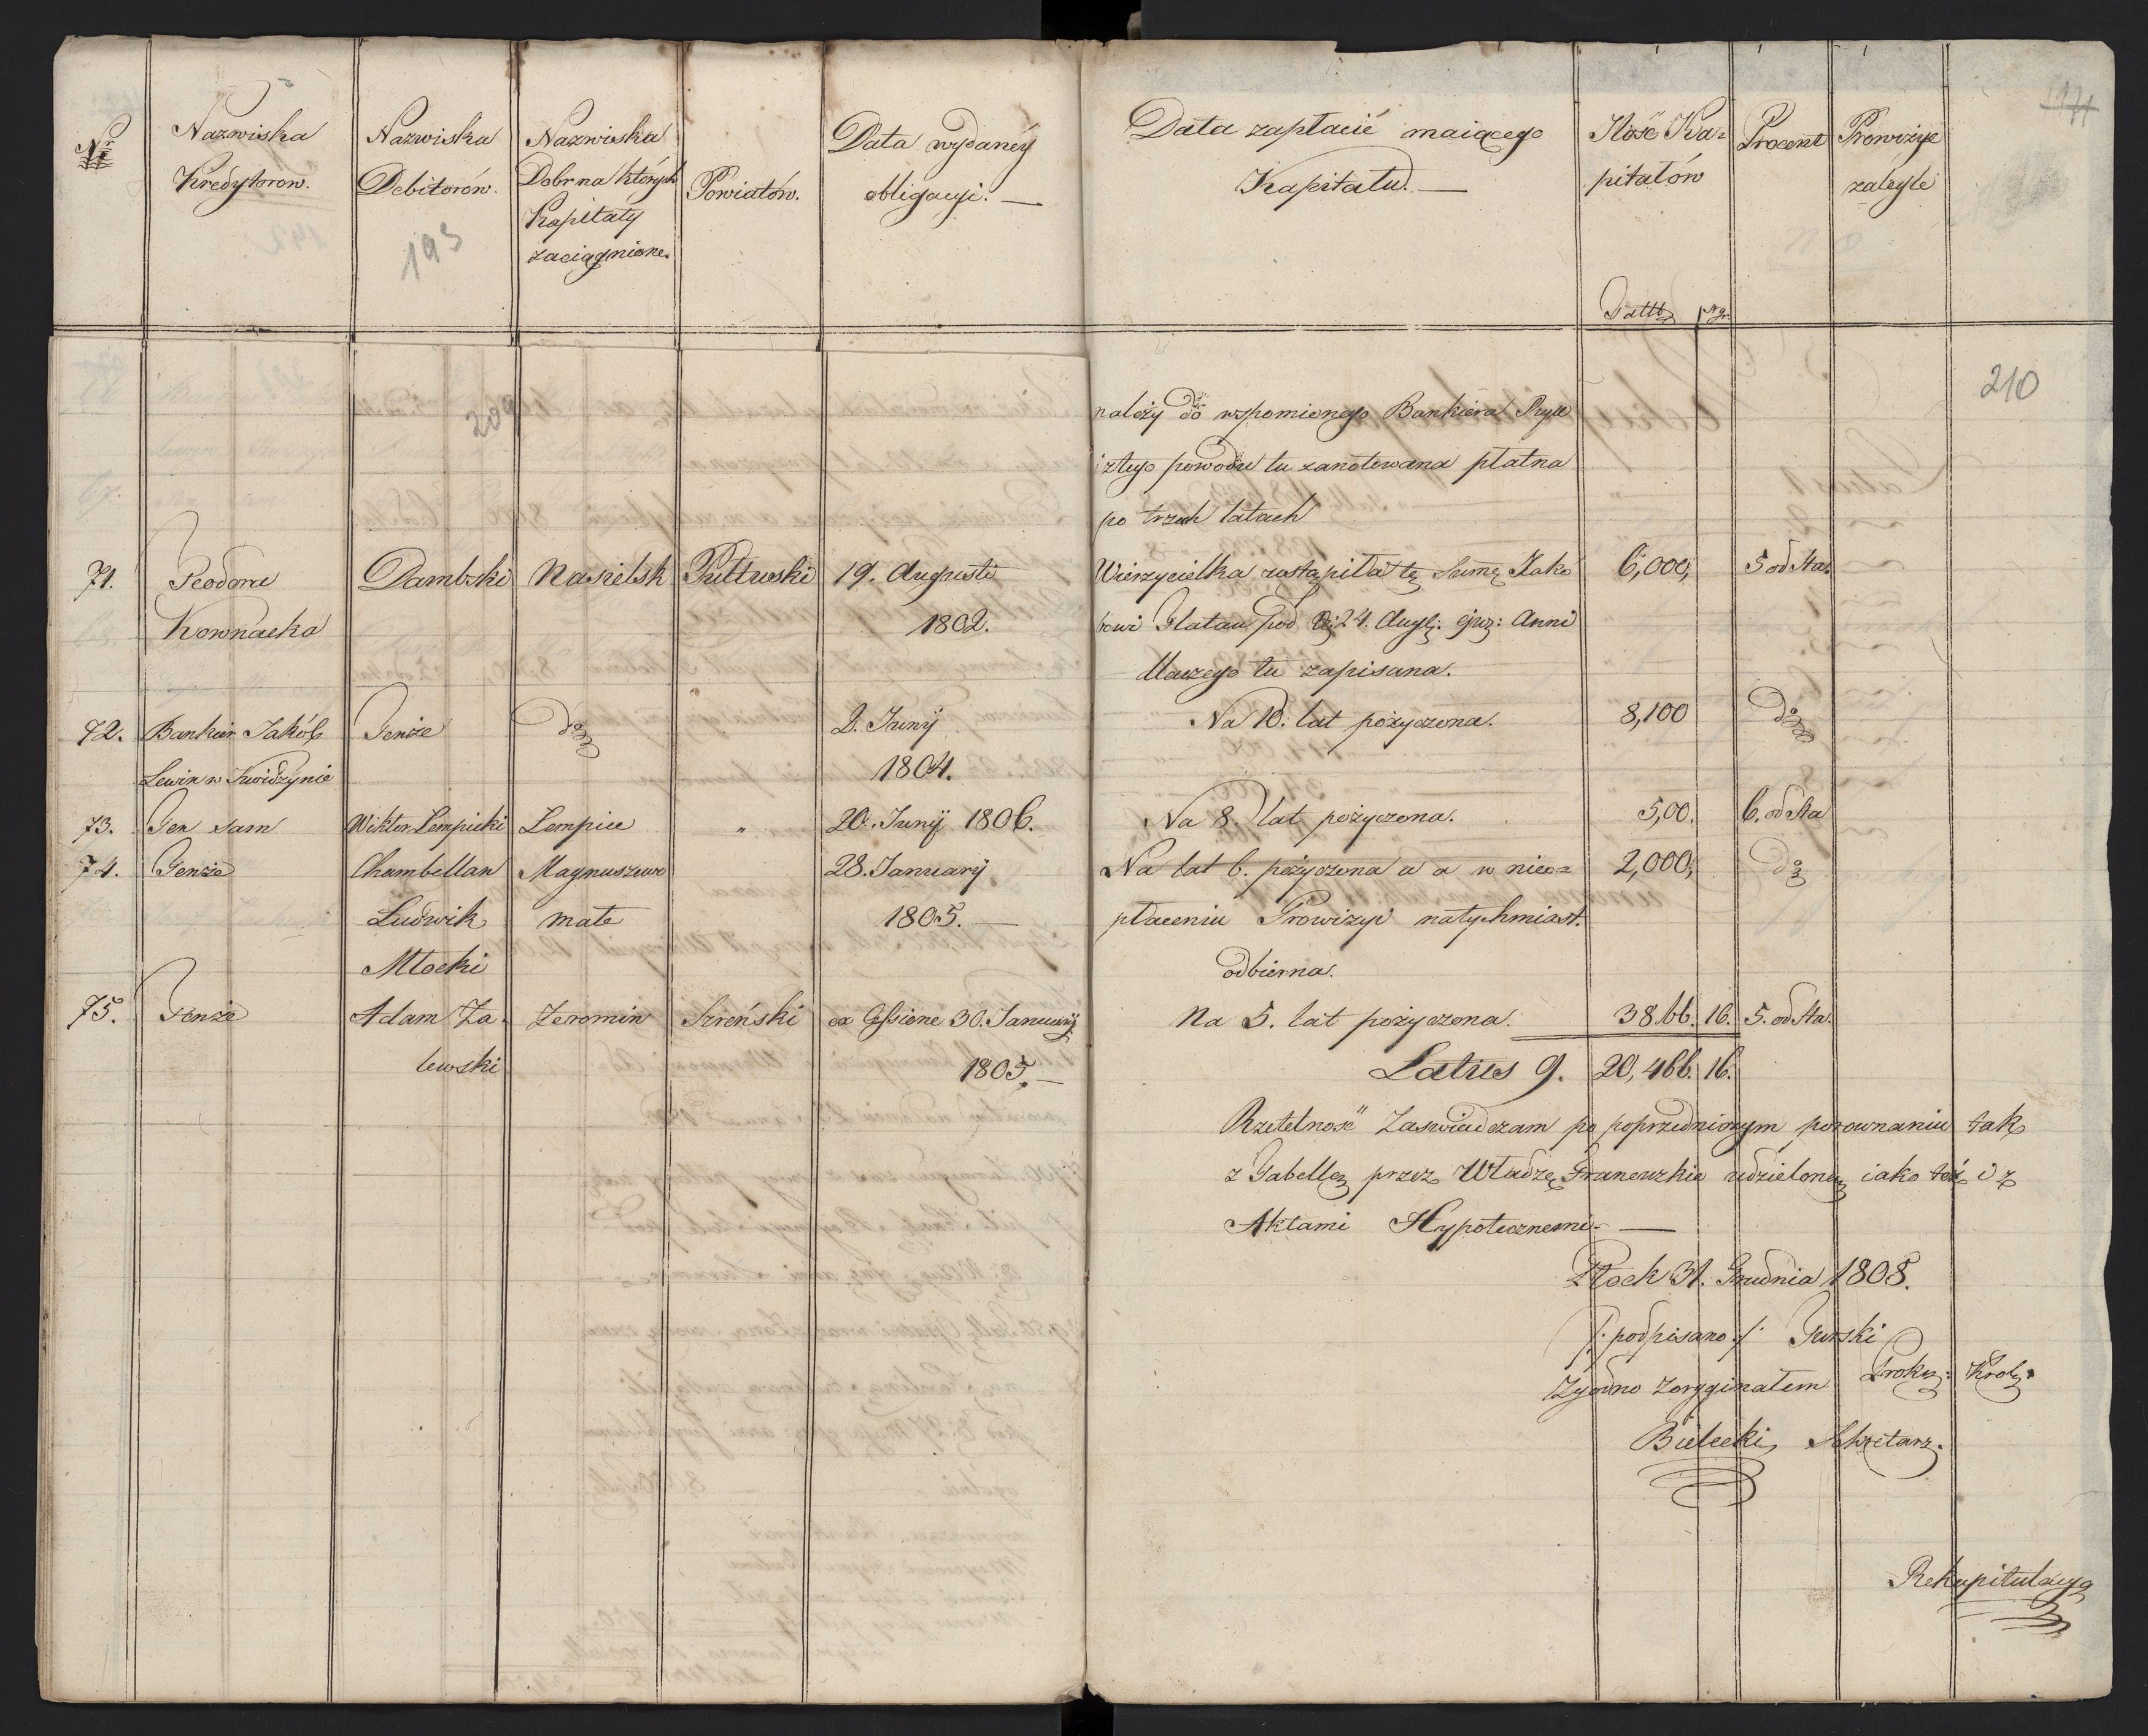 Nr
Nazwiska
Kredytorow.
Nazwiska
Debitorów.
193
Nazwiska
Dobr na których
Kapitały
zaciągnione.
Powiatów.
Data wydaney
obligacyi. —
Data zapłacić maiącego
Kapitału. —
Ilość Ka=
pitałów
Procent
Prowizye
zaległe
209
210
należy do wspomionego Bankiera
i z tego powodu tu zanotowana płatna
po trzech latach
71. Teodora Dambski Nasielsk Pułtuski 19. Augusti Wierzycielka ustąpiła tę Sumę Jako 6,000, 5 od sta.
Kownacka 1802. bowi Flatau pod 24. Augt: ejus: Anni
dlaczego tu zapisana.
72. Bankier Jakób Tenże do 2. Juny Na 10. lat pożyczona. 8,100 do
Lewin w Kwidzynie 1804.
73. Ten sam Wiktor Lempicki Lempice „ 20. Juny 1806. Na 8. lat pożyczona. 5,00. 6. od sta
74. Tenże Chambellan Magnuszewo 28. January Na lat 6. pożyczona a a w nieo= 2,000, do
Ludwik małe 1805. — płaceniu Prowizyi natychmiast.
Młocki odbierna.
75. Tenże Adam Za- Zeromin Sreński ex Cessione 30. January Na 5. lat pożyczona. 3866. 16. 5. od sta.
lewski 1805. —
Latus 9. 20,466. 16.
Rzetelność Zaswiadczam po poprzedniozym porownaniu tak
z Tabellą przez Władzę Francuzkie udzieloną iako też i z
Aktami Hypotecznemi. —
Płock 31. Grudnia 1808.
/: podpisano :/ Gurski
Prokur: Krol:
Zgodno z orygginałem
Bielecki, Sekretarz.
Rekapitulacya